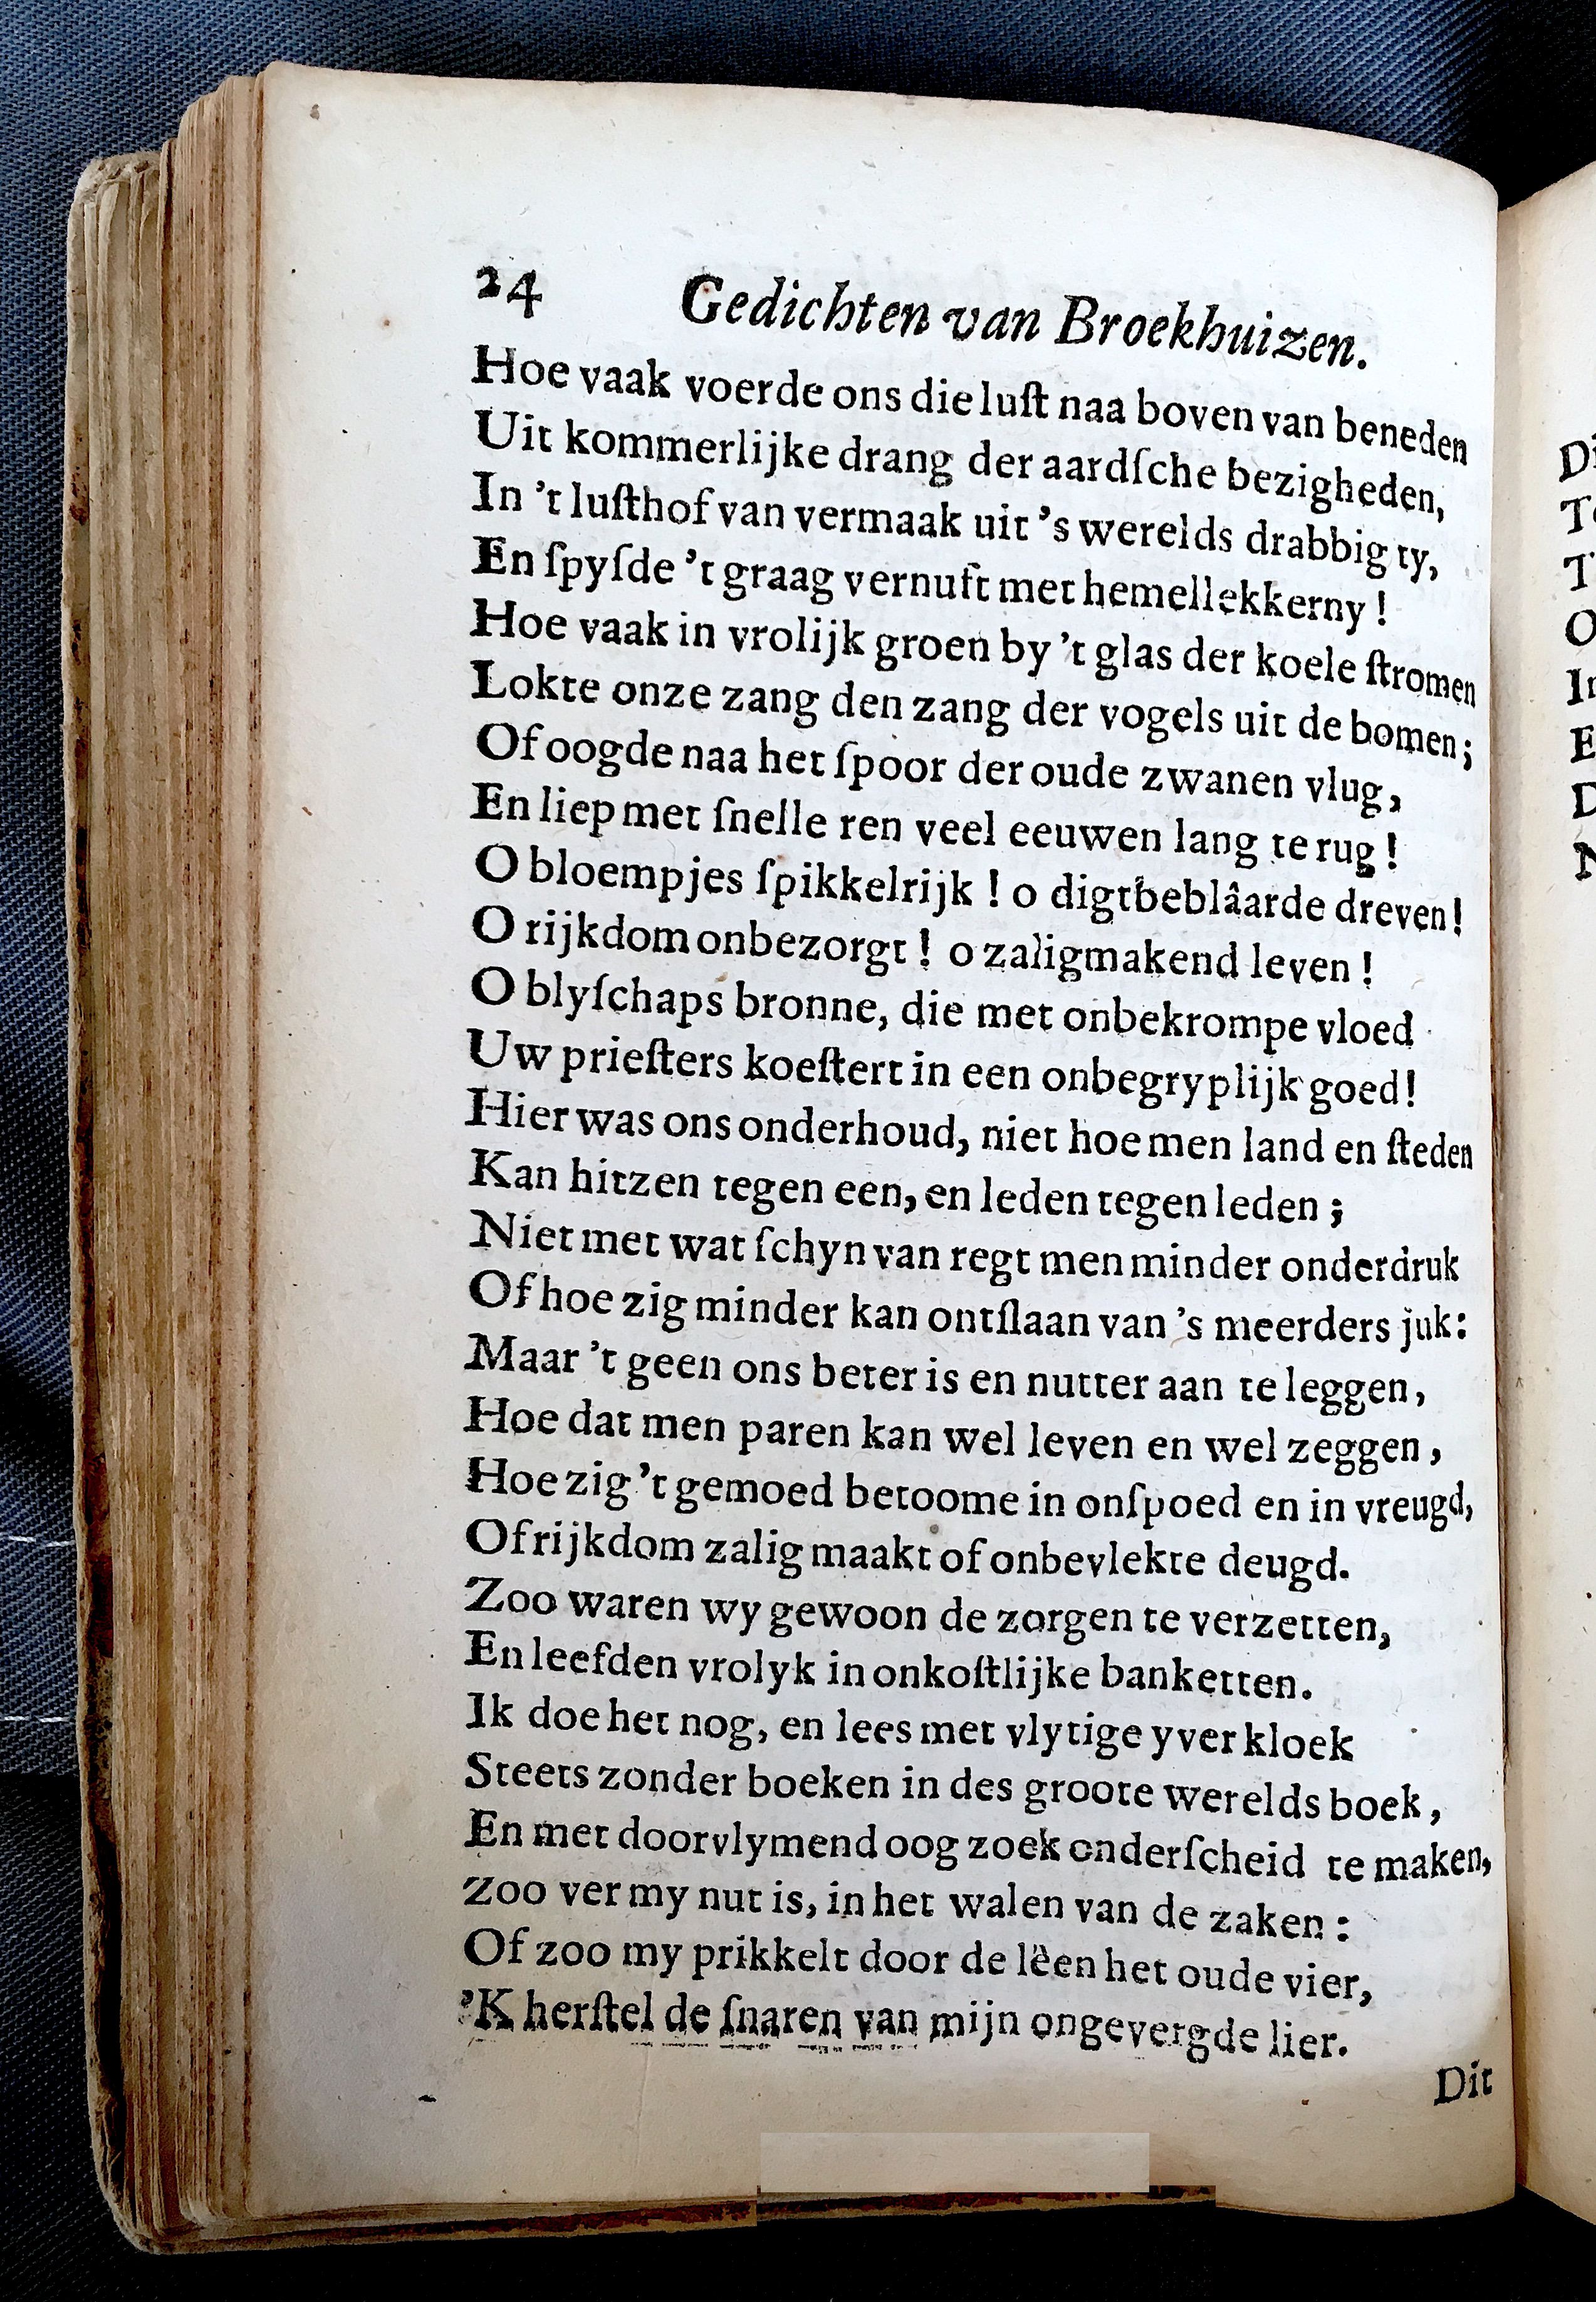 24 Gedichten van Broekhuizen.
Hoe vaak voerde ons die luſt naa boven van beneden
Uit kommerlijke drang der aardſche bezigheden,
In 't luſthof van vermaak uit 's werelds drabbig ty,
En ſpyſde 't graag vernuft met hemellekkerny!
Hoe vaak in vrolijk groen by 't glas der koele ſtromen
Lokte onze zang den zang der vogels uit de bomen;
Of oogde naa het ſpoor der oude zwanen vlug,
En liep met ſnelle ren veel eeuwen lang te rug!
O bloempjes ſpikkelrijk! o digtbeblâarde dreven!
O rijkdom onbezorgt! o zaligmakend leven!
O blyſchaps bronne, die met onbekrompe vloed
Uw prieſters koeſtert in een onbegryplijk goed!
Hier was ons onderhoud, niet hoe men land en ſteden
Kan hitzen tegen een, en leden tegen leden;
Niet met wat ſchyn van regt men minder onderdruk
Of hoe zig minder kan ontſlaan van 's meerders juk:
Maar 't geen ons beter is en nutter aan te leggen,
Hoe dat men paren kan wel leven en wel zeggen,
Hoe zig 't gemoed betoome in onſpoed en in vreugd,
Of rijkdom zalig maakt of onbevlekte deugd.
Zoo waren wy gewoon de zorgen te verzetten,
En leefden vrolyk in onkoſtlijke banketten.
Ik doe het nog, en lees met vlytige yver kloek
Steets zonder boeken in des groote werelds boek,
En met doorvlymend oog zoek onderſcheid te maken,
Zoo ver my nut is, in het walen van de zaken:
Of zoo my prikkelt door de lëen het oude vier,
'K herſtel de ſnaren van mijn ongevergde lier.
Dit